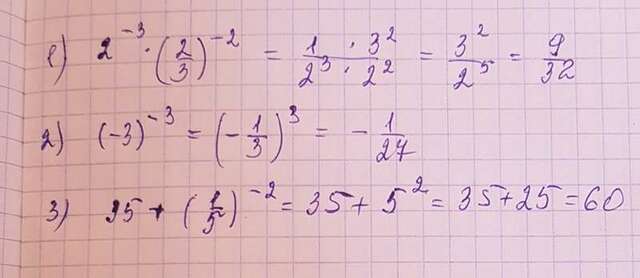 1) 2⁻³ · (2/3)⁻² = 1 · 3²/2³ · 2² = 3²/2⁵ = 9/32
2) (-3)⁻³ = (-1/3)³ = -1/27
3) 35 + (1/5)⁻² = 35 + 5² = 35 + 25 = 60